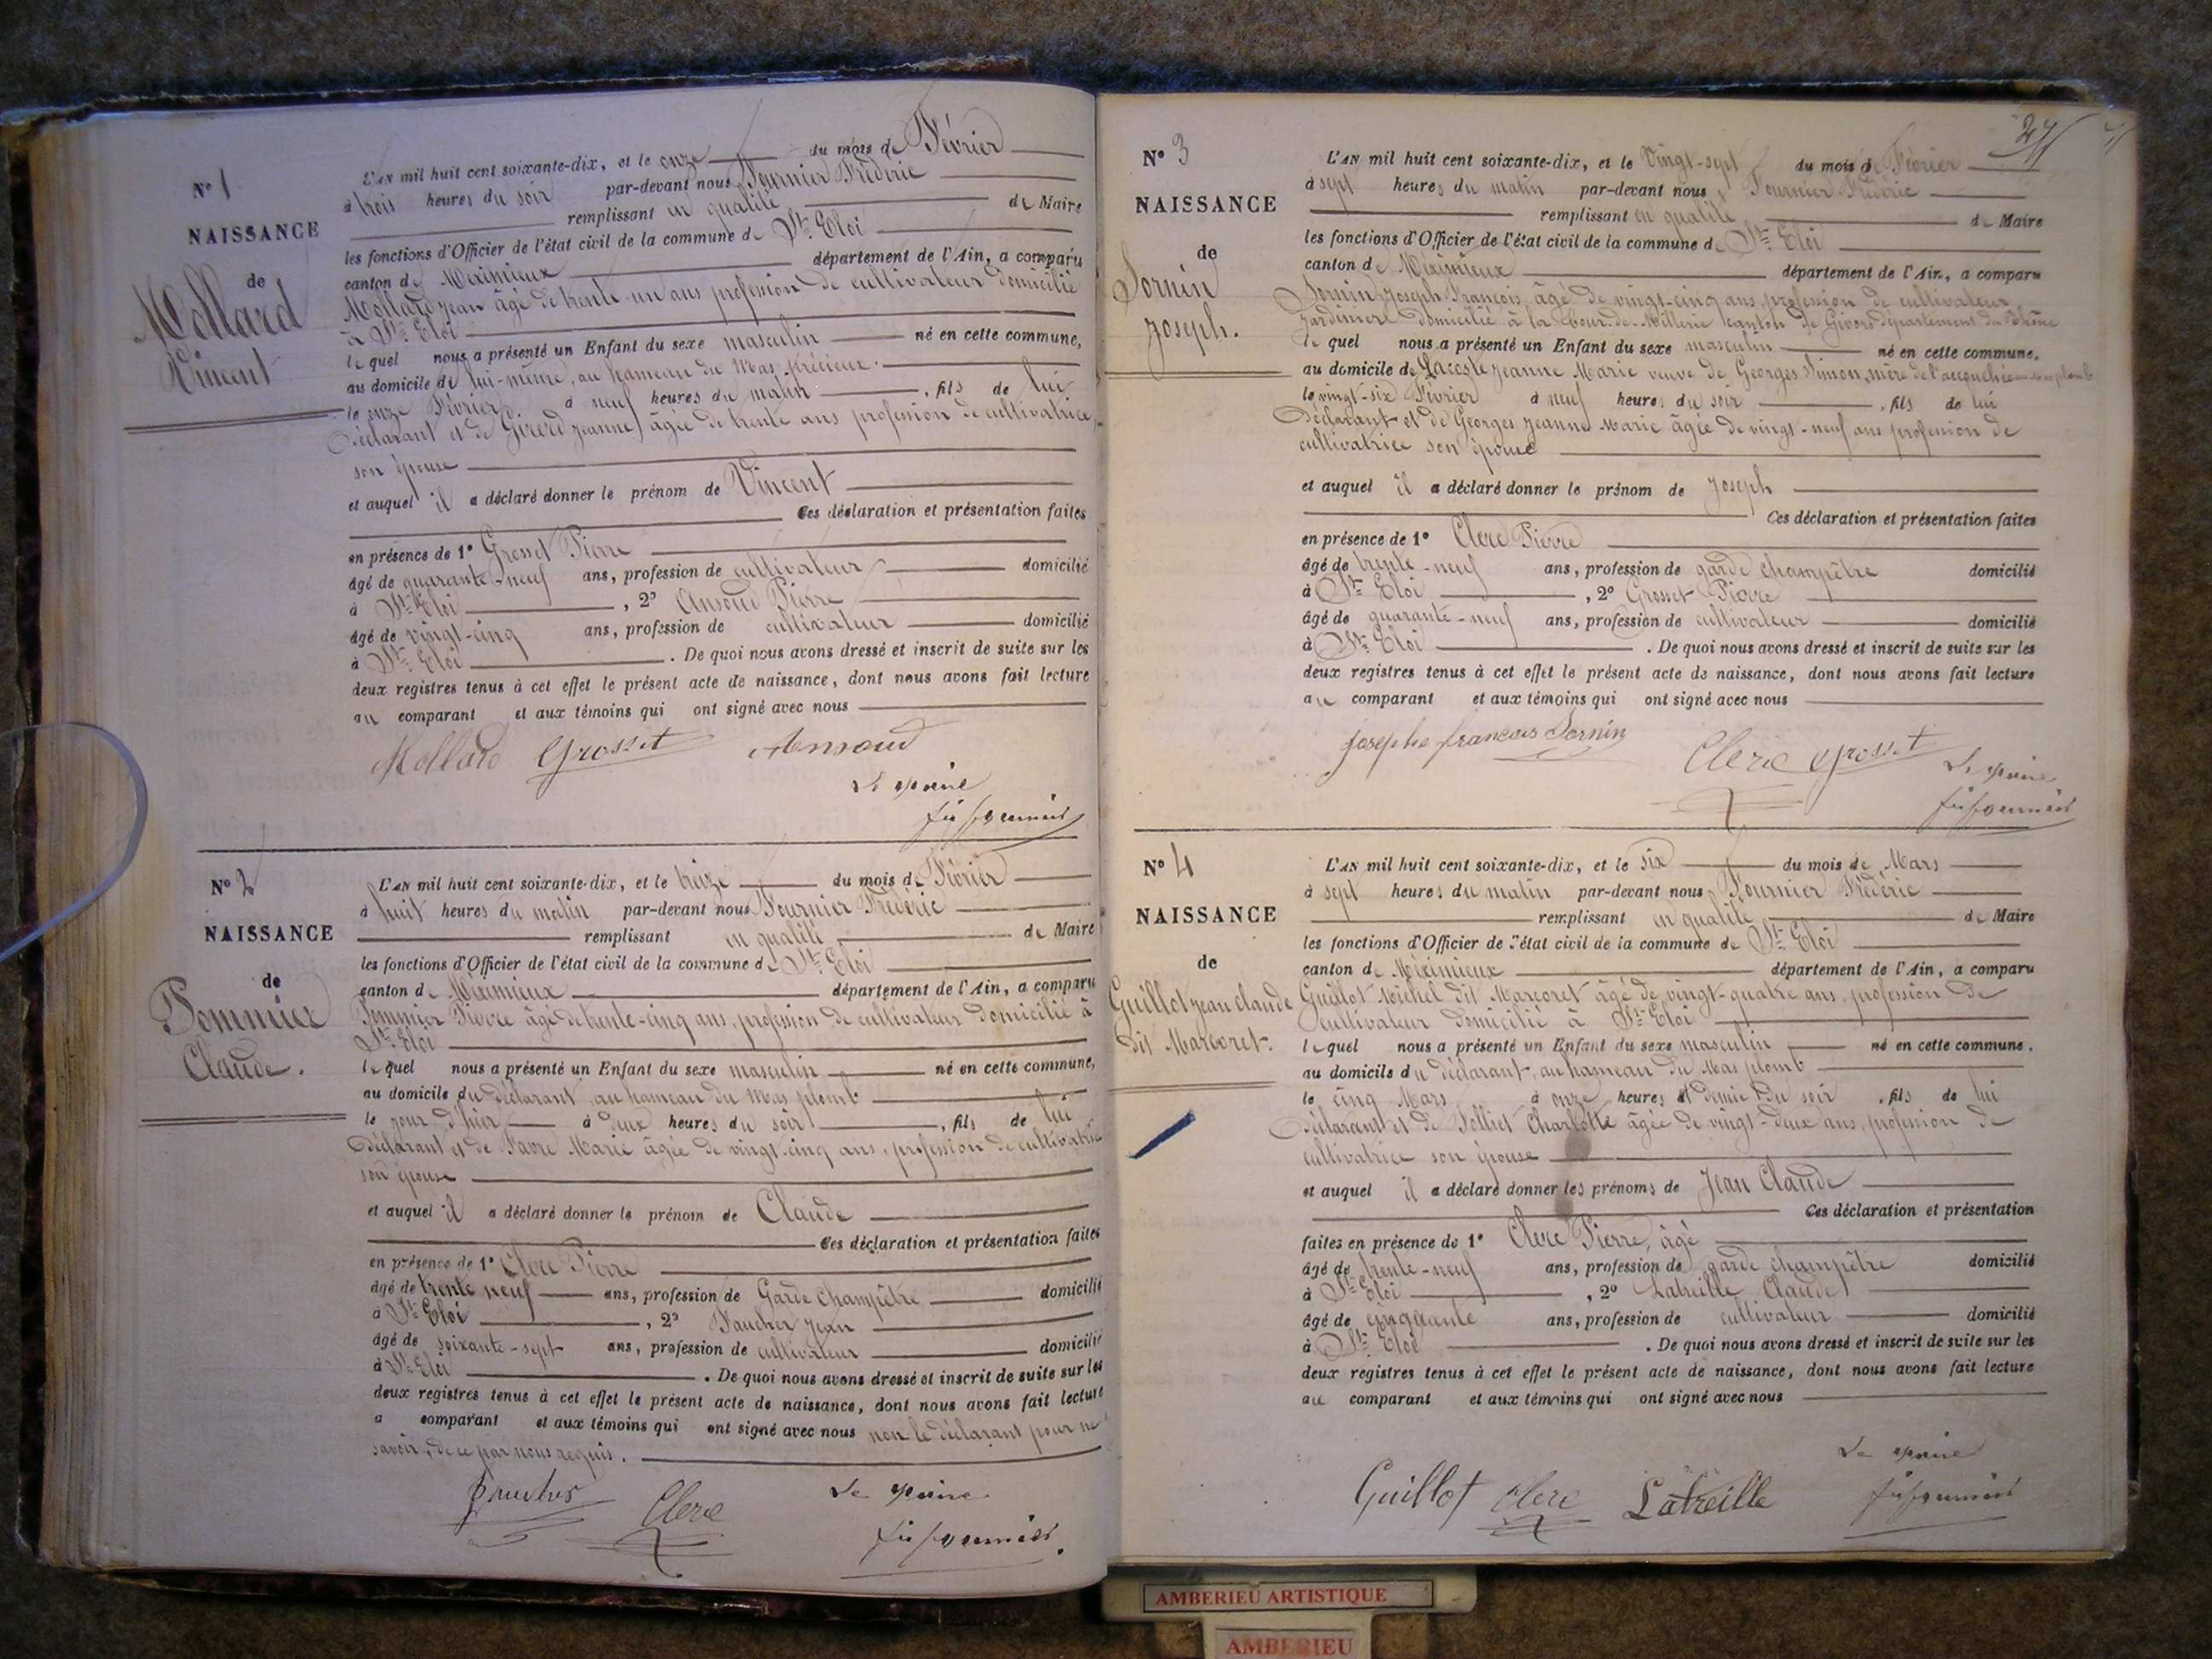 N° 1
NAISSANCE
de
Mollard
Vincent
L'AN mil huit cent soixante-dix, et le onze du mois de Février
à trois heures du soir par-devant nous Fournier Fréderic
remplissant en qualité de Maire
les fonctions d'Officier de l'état civil de la commune de St. Eloi
canton de Méximieux département de l'Ain, a comparu
Mollard Jean âgé de trente-un ans profession de cultivateur domicilié
à St. Eloi
lequel nous a présenté un Enfant du sexe masculin né en cette commune,
au domicile de lui-même, au hameau du Mas précieux.
le onze Février à neuf heures du matin, fils de lui
Déclarant et de Girerd Jeanne âgée de trente ans profession de cultivatrice,
son épouse
et auquel il a déclaré donner le prénom de Vincent
Ces déclaration et présentation faites
en présence de 1° Grosset Pierre
âgé de quarante-neuf ans, profession de cultivateur domicilié
à St. Eloi, 2° Ansoud Pierre
âgé de vingt-cinq ans, profession de cultivateur domicilié
à St. Eloi. De quoi nous avons dressé et inscrit de suite sur les
deux registres tenus à cet effet le présent acte de naissance, dont nous avons fait lecture
au comparant et aux témoins qui ont signé avec nous
Mollard Grosset Ansoud
Le maire
N° 2
NAISSANCE
de
Pommier
Claude.
L'AN mil huit cent soixante-dix, et le treize du mois de Février
à huit heures du matin par-devant nous Fournier Fréderic
remplissant en qualité de Maire
les fonctions d'Officier de l'état civil de la commune de St. Eloi
canton de Méximieux département de l'Ain, a comparu
Pommier Pierre âgé de trente-cinq ans, profession de cultivateur domicilié à
St. Eloi
lequel nous a présenté un Enfant du sexe masculin né en cette commune,
au domicile du déclarant, au hameau du Mas plomb
le jour d'hier à deux heures du soir, fils de lui
Déclarant et de Favre Marie âgée de vingt-cinq ans, profession de cultivatrice
son épouse
et auquel il a déclaré donner le prénom de Claude
Ces déclaration et présentation faites
en présence de 1° Clerc Pierre
âgé de trente neuf ans, profession de Garde Champêtre domicilié
à St. Eloi, 2° Faucher Jean
âgé de soixante-sept ans, profession de cultivateur domicilié
à St. Eloi. De quoi nous avons dressé et inscrit de suite sur les
deux registres tenus à cet effet le présent acte de naissance, dont nous avons fait lecture
a comparant et aux témoins qui ont signé avec nous non le déclarant pour ne
savoir, de ce par nous requis.
Clerc Le maire
N° 3
NAISSANCE
de
Sornin
Joseph.
L'AN mil huit cent soixante-dix, et le Vingt-sept du mois de Février
à sept heures du matin par-devant nous Fournier Fréderic
remplissant en qualité de Maire
les fonctions d'Officier de l'état civil de la commune de St. Eloi
canton de Méximieux département de l'Ain, a comparu
Sornin Joseph François, âgé de vingt-cinq ans, profession de cultivateur
Jardinier domicilié à la Tour-de-Millerie canton de Givors département du Rhône
lequel nous a présenté un Enfant du sexe masculin né en cette commune,
au domicile de Lacoste Jeanne Marie veuve de Georges Simon, mère de l'accouchée au Mas plomb
le vingt-six Février à neuf heures du soir, fils de lui
Déclarant et de Georges Jeanne Marie âgée de vingt-neuf ans profession de
cultivatrice son épouse
et auquel il a déclaré donner le prénom de Joseph
Ces déclaration et présentation faites
en présence de 1° Clerc Pierre
âgé de trente-neuf ans, profession de garde champêtre domicilié
à St. Eloi, 2° Grosset Pierre
âgé de quarante-neuf ans, profession de cultivateur domicilié
à St. Eloi. De quoi nous avons dressé et inscrit de suite sur les
deux registres tenus à cet effet le présent acte de naissance, dont nous avons fait lecture
au comparant et aux témoins qui ont signé avec nous
Josephe francois Sornin Clerc Grosset Le maire
N° 4
NAISSANCE
de
Guillot Jean Claude
dit Marcoret.
L'AN mil huit cent soixante-dix, et le six du mois de Mars
à sept heures du matin par-devant nous Fournier Fréderic
remplissant en qualité de Maire
les fonctions d'Officier de l'état civil de la commune de St. Eloi
canton de Méximieux département de l'Ain, a comparu
Guillot Michel dit Marcoret âgé de vingt-quatre ans, profession de
cultivateur domicilié à St. Eloi
lequel nous a présenté un Enfant du sexe masculin né en cette commune,
au domicile du déclarant, au hameau du Mas plomb
le cinq Mars à onze heures et demie du soir, fils de lui
Déclarant et de Jolliet Charlotte âgée de vingt-deux ans, profession de
cultivatrice son épouse
et auquel il a déclaré donner les prénoms de Jean Claude
Ces déclaration et présentation
faites en présence de 1° Clerc Pierre, âgé
âgé de trente-neuf ans, profession de garde champêtre domicilié
à St. Eloi, 2° Latreille Claude
âgé de cinquante ans, profession de cultivateur domicilié
à St. Eloi. De quoi nous avons dressé et inscrit de suite sur les
deux registres tenus à cet effet le présent acte de naissance, dont nous avons fait lecture
au comparant et aux témoins qui ont signé avec nous
Le maire
Guillot Clerc Latreille
AMBERIEU ARTISTIQUE
AMBERIEU